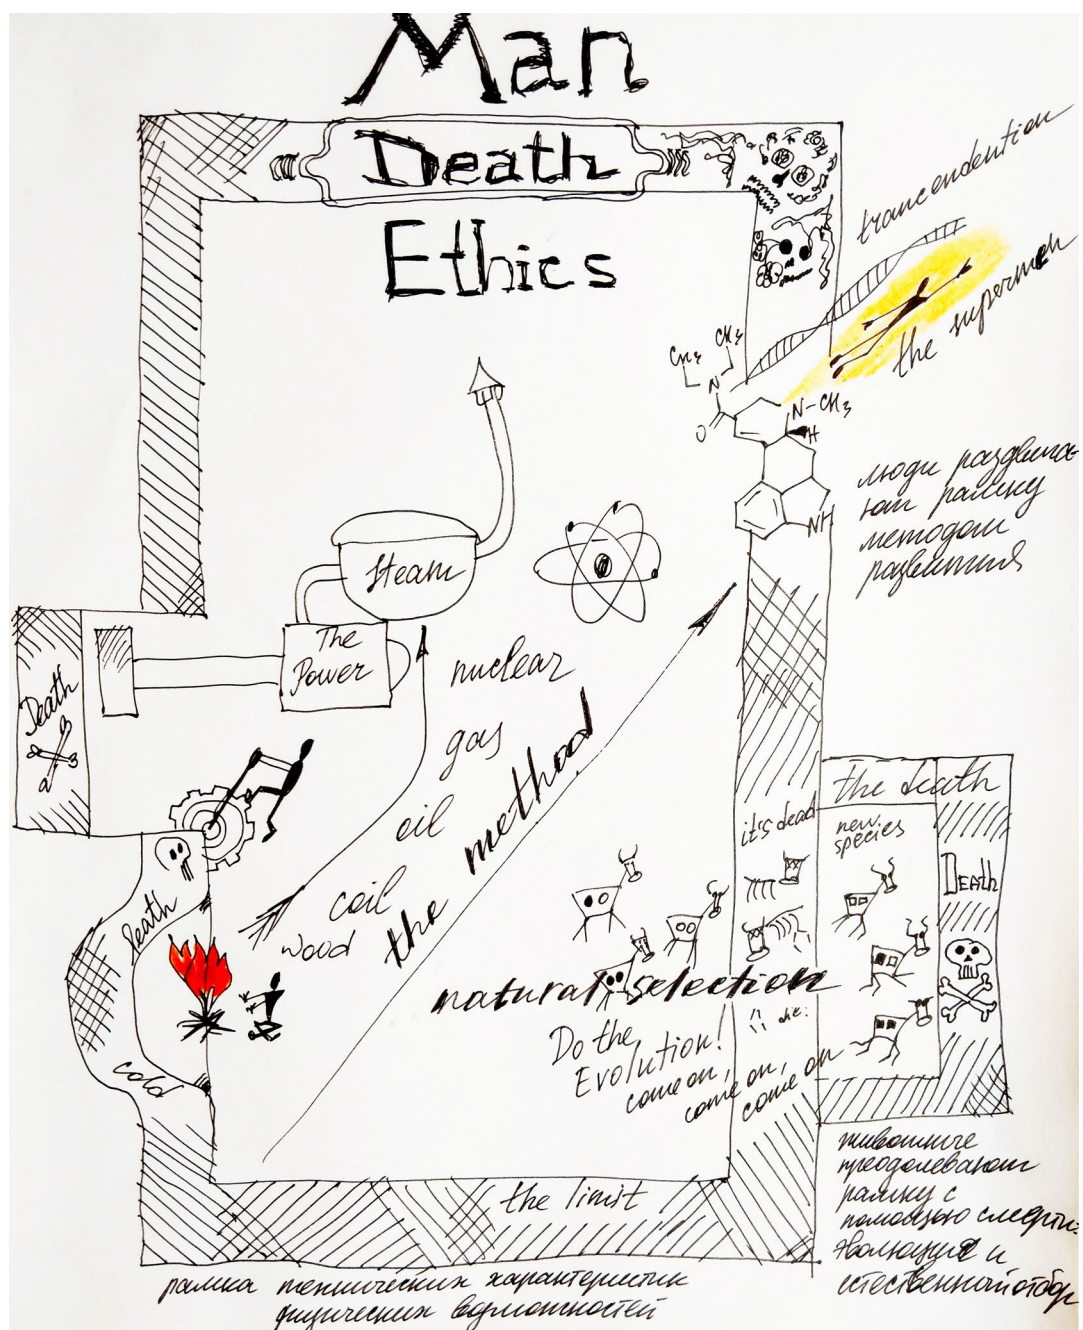 Man
Death
Ethics
trancendention
the supermen
CH3
CH3
N
O
N-CH3
H
NH
люди раздвига-
ют рамку
методом
развития
Steam
The
Power
Death
nuclear
gas
oil
coil
wood
the method
death
cold
it's dead
the death
new.
species
Death
natural selection
die:
Do the
Evolution!
come on,
come on,
come on
the limit
животные
преодолевают
рамку с
помощью смерти.
Эволюция и
естественный отбор
рамка технических характеристик
физических возможностей